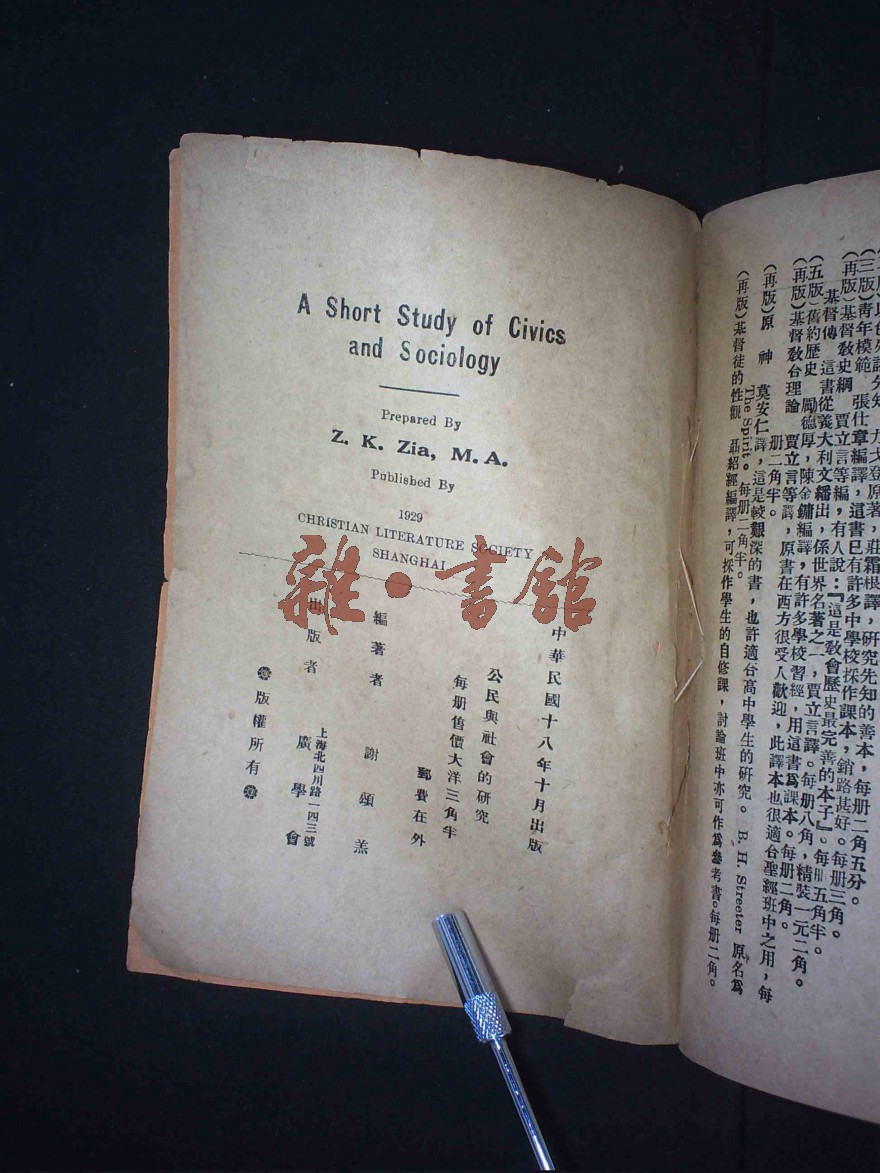 A Short Study of Civics
and Sociology
Prepared By
Z. K. Zia, M. A.
Published By
1929
CHRISTIAN LITERATURE SOCIETY
SHANGHAI
雜·書館
中華民國十八年十月出版
公民與社會的研究
每册售價大洋三角半
郵費在外
編著者 謝頌羔
出版者 上海北四川路一四三號
廣學會
版權所有
(三版)青年模範 張仕章編譯,這書已有許多中學校採作課本,銷路甚好。每册三角。
(再版)基督敎史綱 賈立言等編,有人說:『這是敎會歷史最完善的本子』。每册五角半。
基督傳 這書從義大利文繙出,係世界名著之一,賈立言譯。每册八角,精裝一元二角。
(五版)舊約歷史 厲德厚,陳金鏞編譯,有許多學校習經,用這書爲課本。每册二角。
(再版)基督敎合理論 賈立言等譯,原書在西方很受人歡迎,此譯本也很適合聖經班中之用,每
册二角半。
(再版)原神 莫安仁譯,這是較艱深的書,也許適合高中學生的研究。B. H. Streeter 原名爲
The Spirit。每册二角半。
(再版)基督徒的性觀 聶紹經編譯,可採作學生的自修課,討論班中亦可作爲參考書。每册二角。